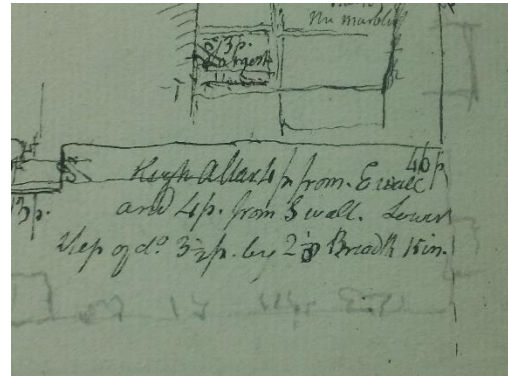 No marble
13p.
largest
4p
High Altar 4p from E wall
and 4p. from S wall. Lower
Step of do. 3½p. by 2 Breadth 15in.
13p.